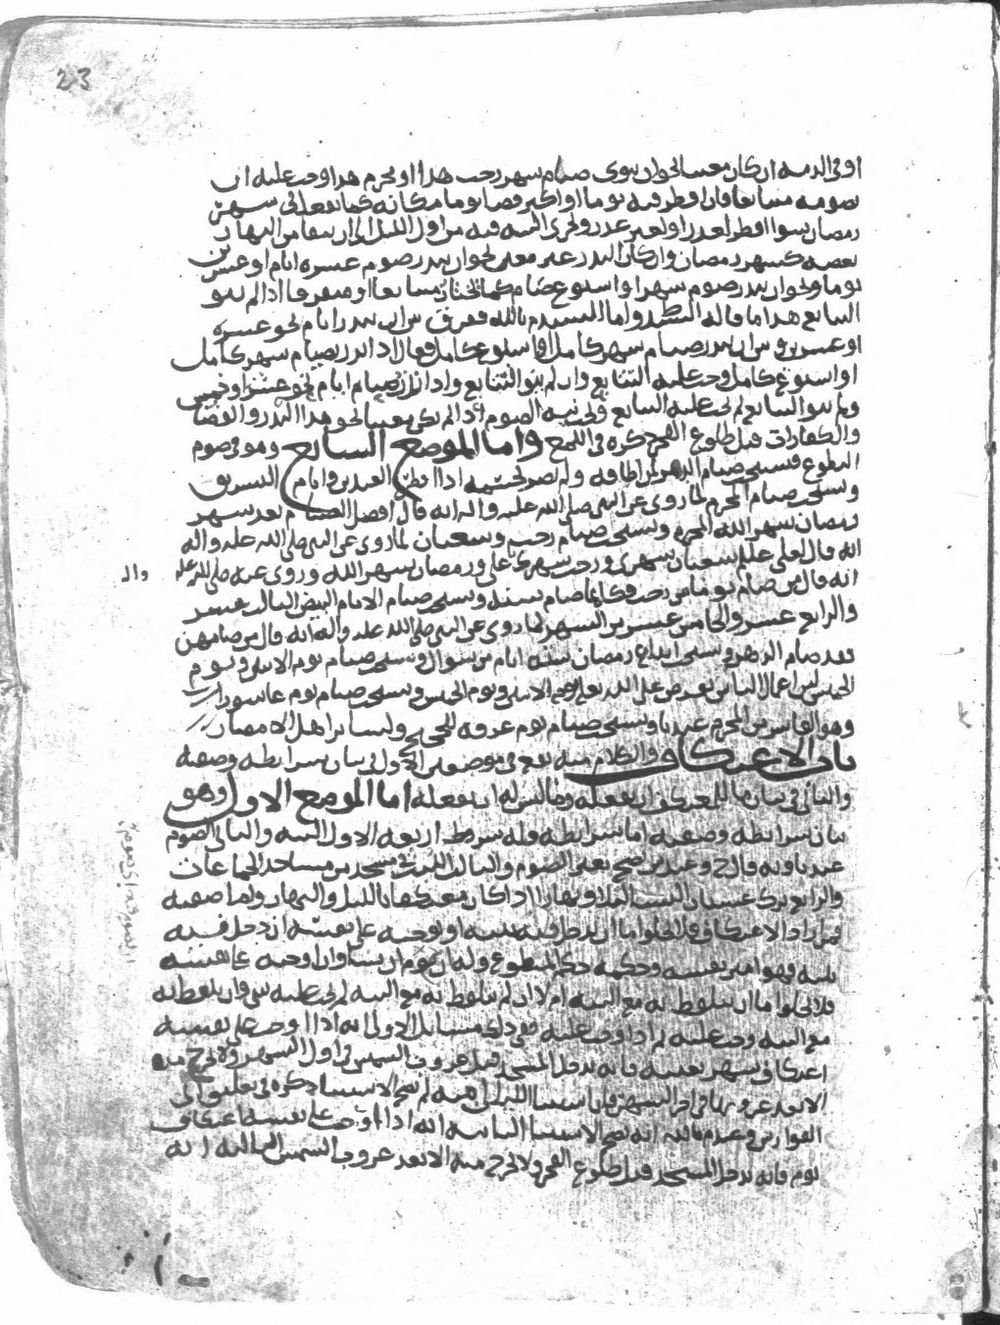 23
او في الذمه ان كان معينا نحو ان ينوي صيام شهر رجب هذا او محرم هذا وجب عليه ان
يصومه متتابعا فان افطر فيه يوما او اكثر قضا يوما مكانه كما يفعل في شهر
رمضان سوا افطر لعذر او لغير عذر ويجزي النيه فيه من اول الليل الى ان يبقا من النهار
بعضه كشهر رمضان وان كان النذر غير معين نحو ان ينذر صوم عشره ايام او عشرين
يوما ونحو ان ينذر صوم شهر او اسبوع صام كما يختار متتابعا او متفرقا اذا لم ينو
التتابع هذا ما قاله السيد واما السيد م بالله ففرق بين ان ينذر ايام نحو عشره
او عشرين وبين ان ينذر صيام شهر كامل او اسبوع كامل فقال اذا نذر بصيام شهر كامل
او اسبوع كامل وجب عليه التتابع وان لم ينو التتابع واذا نذر بصيام ايام نحو عشر او خمس
ولم ينو التتابع لم يجب عليه التتابع وتجب نيه الصوم اذا لم يكن معينا نحو هذا النذر والقضا
والكفارات قبل طلوع الفجر ذكره في اللمع واما الموضع السابع وهو في صوم
التطوع فيستحب صيام الدهر لمن اطاقه ولم يضر بجسمه اذا افطر العيدين وايام التشريق
ويستحب صيام المحرم لما روي عن النبي صلى الله عليه واله انه قال افضل الصيام بعد شهر
رمضان شهر الله المحرم ويستحب صيام رجب وشعبان لما روي عن النبي صلى الله عليه واله
انه قال لعلي عليلم شعبان شهري ورجب شهرك يا علي ورمضان شهر الله وروي عنه صلى الله عليه واله
انه قال من صام يوما من رجب فكانما صام سنه ويستحب صيام الايام البيض الثالث عشر
والرابع عشر والخامس عشر من الشهر لما روي عن النبي صلى الله عليه واله انه قال من صامهن
فقد صام الدهر ويستحب اتباع رمضان سته ايام من شوال ويستحب صيام يوم الاثنين ويوم
الخميس لان اعمال الناس تعرض على الله تعلى يوم الاثنين ويوم الخميس ويستحب صيام يوم عاشورا
وهو العاشر من المحرم عندنا ويستحب صيام يوم عرفه للحجيج ولساير اهل الامصار
باب الاعتكاف والكلام منه يقع في موضعين الاول في بيان شرايطه وصفته
والثاني في بيان ما للمعتكف ان يفعله وما ليس له ان يفعله اما الموضع الاول وهو
بيان شرايطه وصفته اما شرايطه فله شروط اربعه الاول النيه والثاني الصوم
عندنا وبه قال ح وعند ش يصح بغير الصوم والثالث اللبث في مسجد من مساجد الجماعات
والرابع ترك غشيان النسا ليلا ونهارا اذا كان معتكفا بالليل والنهار واما صفته
فمن اراد الاعتكاف فلا يخلوا اما ان يدخل فيه بنيته او يوجبه على نفسه ان دخل فيه
بنيه فهو امير نفسه وحكمه حكم المتطوع وله ان يخرج متى شا وان اوجبه على نفسه
فلا يخلوا اما ان يتلفظ به مع النيه ام لا ان لم يتلفظ به مع النيه لم يجب عليه شي وان تلفظ به
مع النيه وجب عليه ثم اذا وجب عليه ففي ذلك مسايل الاولى انه اذا اوجب على نفسه
اعتكاف شهر بعينه فانه يدخل المسجد قبل غروب الشمس في اول الشهر ولا يخرج منه
الا بعد غروبها في اخر الشهر فان استثنا الليالي منه لم يصح الاستثنا ذكره في تعليق ابي
الفوارس وعند م بالله انه يصح الاستثنا الثانيه انه اذا اوجب على نفسه اعتكاف
يوم فانه يدخل المسجد قبل طلوع الفجر ولا يخرج منه الا بعد غروب الشمس الثالثه انه